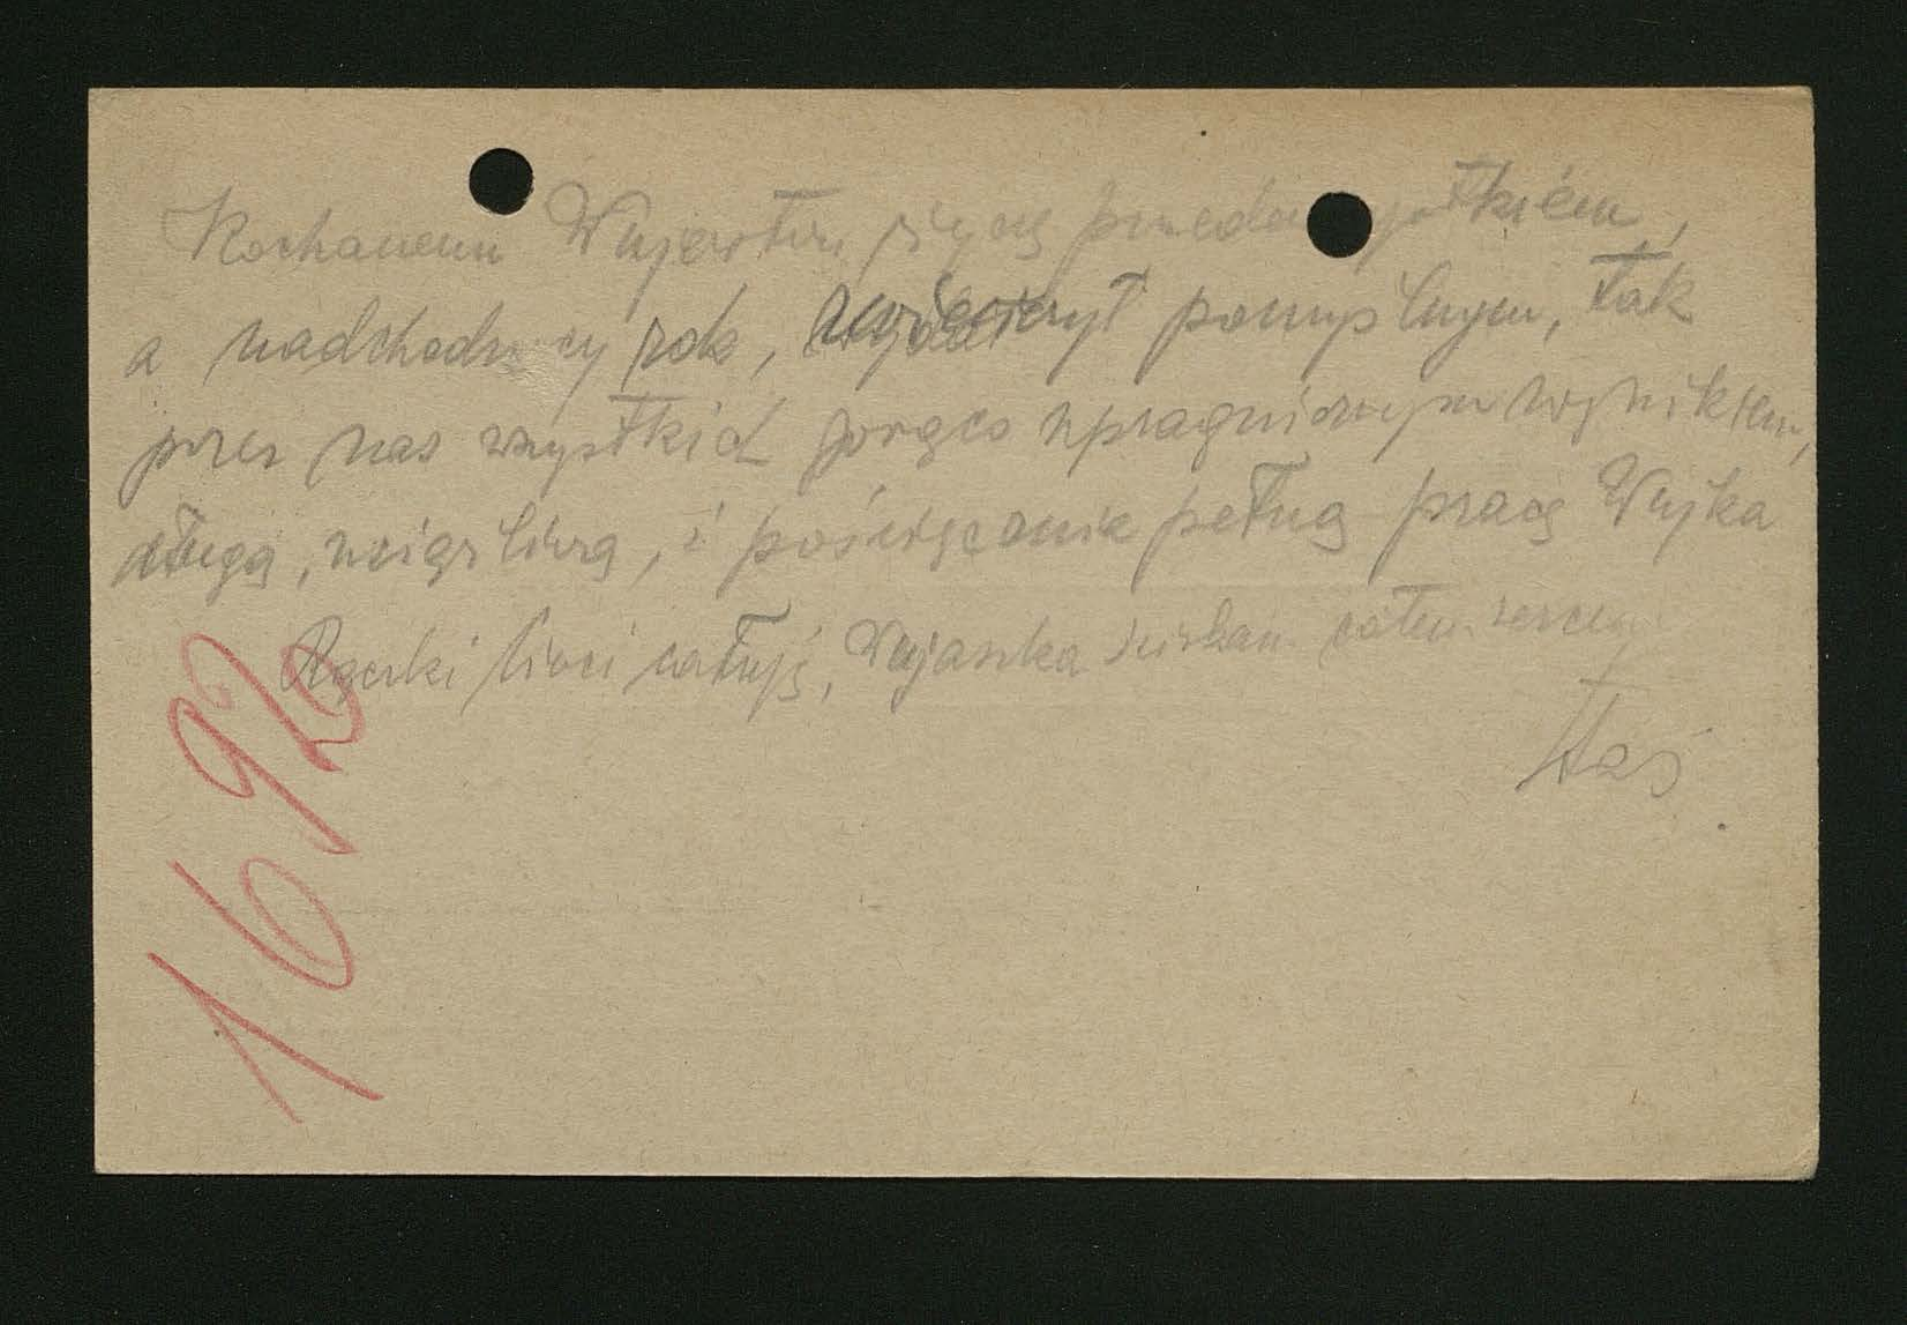 Kochanemu Wujostwu życzę przede wszystkiém,
a nadchodzący rok, uwieńczył pomyślnym, tak
przez nas wszystkich gorąco upragnionym wynikiem,
długą, uciążliwą, i poświęcenie pełną pracę Wujka
Rączki Cioci całuję, Wujaszka ściskam całem sercem
Staś
1692